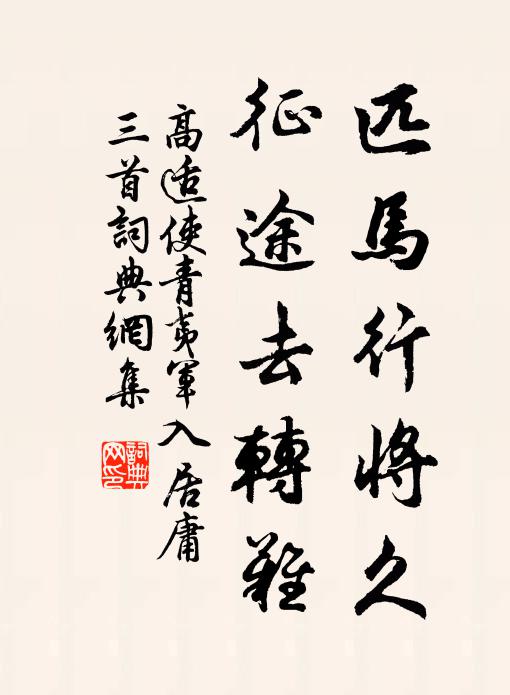 匹馬行將久
征途去轉難
高适使青夷軍入居庸
三首詞典網集
詞典
网印